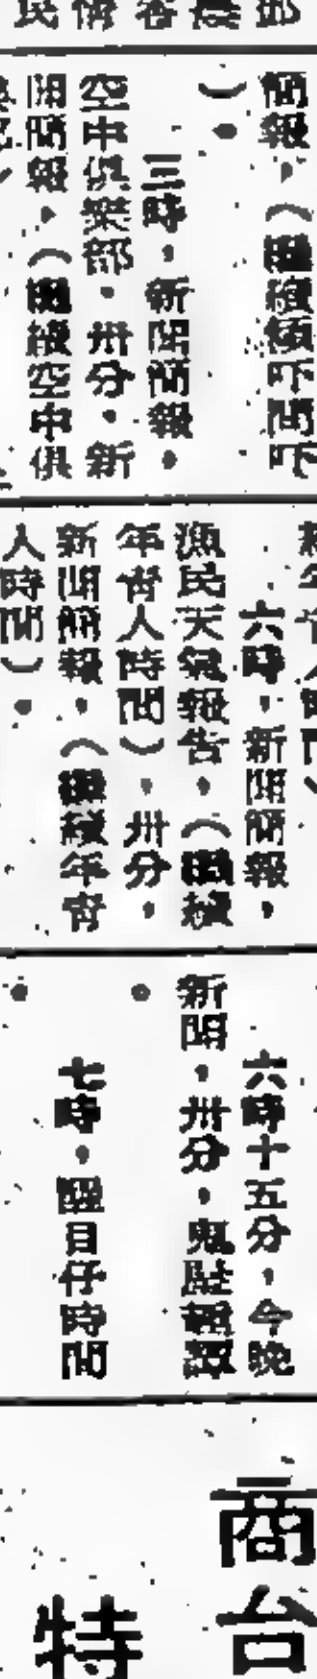 簡報,(繼續頻吓問吓
)。
三時,新聞簡報。
空中俱樂部。卅分。新
聞簡報,(繼續空中俱
六時,新聞簡報,
漁民天氣報告,(繼續
年青人時間),卅分,
新聞簡報,(繼續年青
人時間)。
六時十五分,今晚
新聞,卅分,鬼點趣譚
。
七時,醒目仔時間
。
商台
特